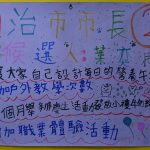 自治市市長②
候選人:葉
大家自己設計每日的營養午
加戶外教學次數
個月舉辦
加職業體驗活動